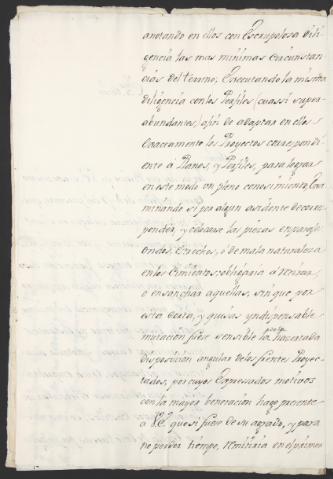 anotando en ellos con Escrupulosa dili
gencia las mas minimas circunstan
cias del terreno; Executando la misma
diligencia con los Perfiles (cuassi supera
abundantes) a fin de adaptar en ellos
Exactamente los Proyectos correspondi
ente à Planos, y Perfiles, para lograr
en este modo un pleno conosimiento, Exa
minando si por algun accidente de corres
ponder, y colocarse las piezas en paraje
ondos, Estrechos, ò de mala naturaleza
en los Cimientos; obligaria à
o ensanchar aquellas, sin que por
esta corta, y quisas yndispensable
mutacion fuese sensible la parte
disposicion angular de los frentes Proyec
tados, por cuyos Expresados motivos
con la mayor beneracion hago presente
a V.E. que si fuere de su agrado, y para
no perder tiempo, remitiria en el primer